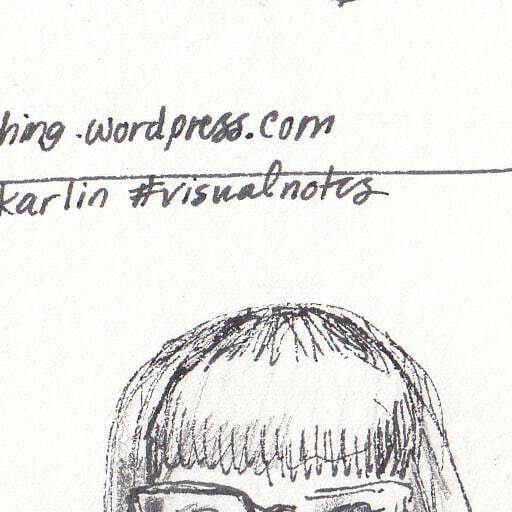 hing.wordpress.com
karlin #visualnotes